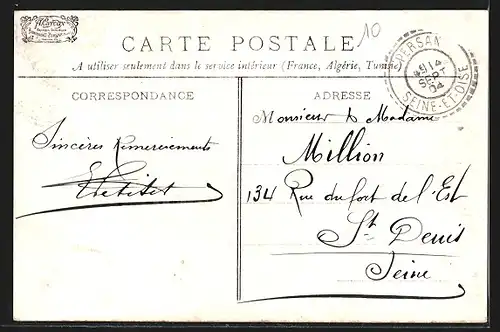 10
CARTE POSTALE
A utiliser seulement dans le service intérieur (France, Algérie, Tunisie)
PERSAN
SEINE-ET-OISE
CORRESPONDANCE
ADRESSE
Sincères Remerciements
Monsieur & Madame
Million
134 Rue du fort de l'Est
St Denis
Seine